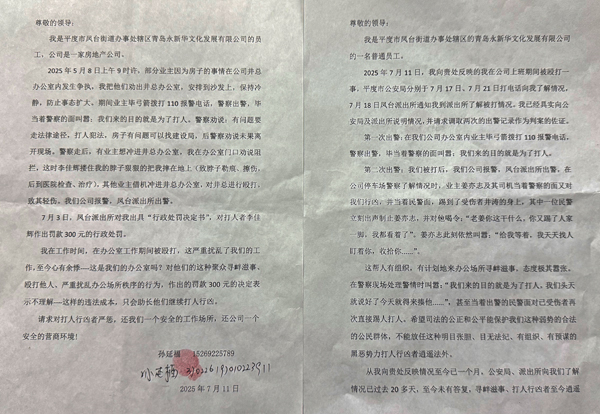 尊敬的领导：
我是平度市凤台街道办事处辖区的青岛永新华文化发展有限公司的员
工，公司是一家房地产公司。
2025 年 5 月 8 日上午 9 时许，部分业主因为房子的事情在公司井总
办公室内发生争执，我把他们劝出井总办公室，安排到沙发上，保持冷
静，防止事态扩大。期间业主毕弓箭拨打 110 报警电话，警察出警，毕
当着警察的面叫嚣：我们来的目的就是为了打人。警察劝说：有问题要
走法律途径，打人犯法，房子有问题可以找建设局。后警察劝说未果离
开现场。警察走后，有业主想冲进井总办公室，我在办公室门口劝说阻
拦，这时李佳辉搂住我的脖子狠狠的把我摔在地上（致脖子勒痕、擦伤，
后到医院检查、治疗），其他业主借机冲进井总办公室，对井总进行殴打，
致其轻伤。我们公司报警，凤台派出所出警。
7 月 3 日，凤台派出所对我出具“行政处罚决定书”，对打人者李佳
辉作出罚款 300 元的行政处罚。
我在工作时间，在办公室工作期间被殴打，这严重扰乱了我们的工
作，至今心有余悸——这是我们的办公室吗？对他们的这种聚众寻衅滋事、
殴打他人、严重扰乱办公场所秩序的行为，作出的罚款 300 元的决定表
示不理解——这样的违法成本，只会助长他们继续打人行凶。
请求对打人行凶者严惩，还我们一个安全的工作场所，还公司一个
安全的营商环境！
孙延福 15269225789
2025 年 7 月 11 日
尊敬的领导：
我是平度市凤台街道办事处辖区的青岛永新华文化发展有限公司
的一名普通员工。
2025 年 7 月 11 日，我向贵处反映的我在公司上班期间被殴打一
事，平度市公安局分别于 7 月 17 日、7 月 21 日打电话向我了解情况，
7 月 18 日凤台派出所通知我到派出所了解被打情况。我已经具实向公
安局及派出所说明情况，并请求调取两次的出警记录作为判案的佐证。
第一次出警，在我们公司办公室内业主毕弓箭拨打 110 报警电话，
警察出警，毕当着警察的面叫嚣：我们来的目的就是为了打人。
第二次出警：我们被打后，我们公司报警，凤台派出所出警。在
公司停车场警察了解情况时，业主姜亦志及其司机当着警察的面又对
我们行凶，并当着民警的面，踢到了受伤者井涛的身上，其中一位民警
立刻出声制止姜亦志，并对他喝令，“老姜你这干什么，你又踢了人家一
脚，我都看着了”。姜亦志此刻依然叫嚣，“给我等着，我天天找人
盯着你，收拾你……”。
这帮人有组织，有计划地来办公场所寻衅滋事，态度极其嚣张。
在警察现场处理警情时叫嚣：“我们来的目的就是打人，我们头天
就说好了今天就得来揍他……”，甚至当着出警的民警面对已受伤者再
次直接踢人打人，希望司法的公正和公平能保护我们这种弱势的合法
的公民群体，不能放任这种明目张胆、目无法纪、有组织、有预谋的
黑恶势力打人行凶者逍遥法外。
从我向贵处反映情况至今已一个月，公安局、派出所向我们了解
情况已过去 20 多天，至今未有答复，寻衅滋事、打人行凶者至今逍遥